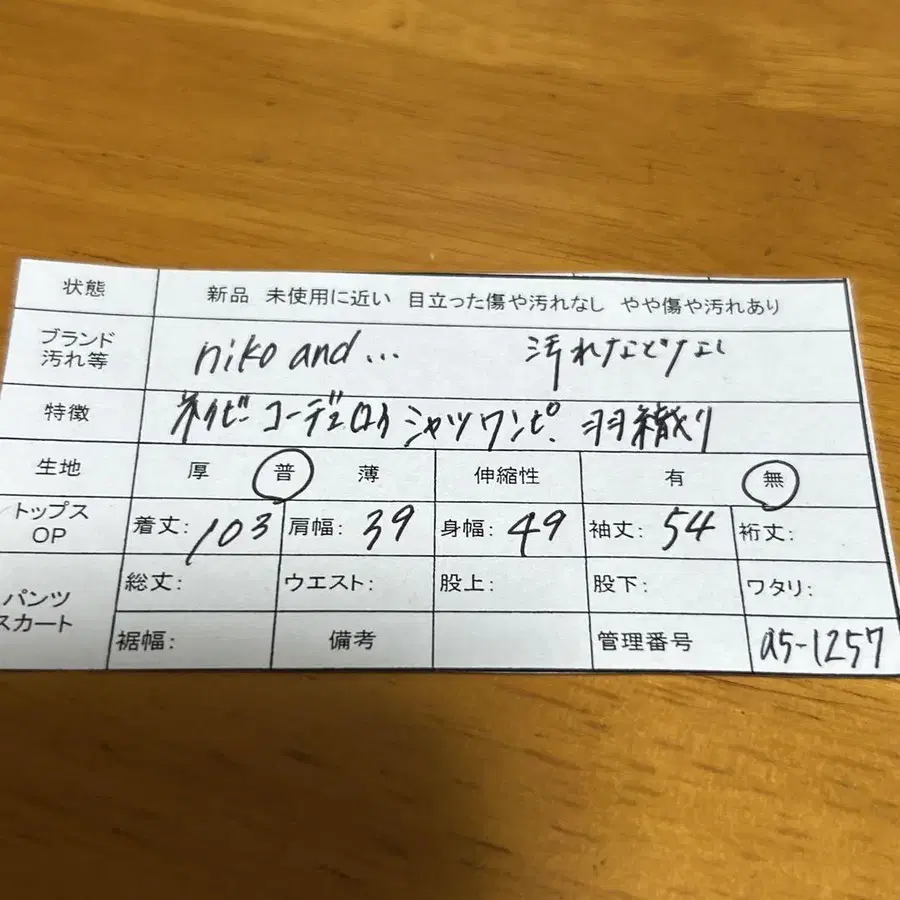 状態 新品 未使用に近い 目立った傷や汚れなし やや傷や汚れあり
ブランド 汚れ等 niko and... 汚れなどなし
特徴 ネイビー コーデュロイ シャツワンピ. 羽織り
生地 厚 普 薄 伸縮性 有 無
トップス OP 着丈: 103 肩幅: 39 身幅: 49 袖丈: 54 裄丈:
パンツ スカート 総丈: ウエスト: 股上: 股下: ワタリ:
裾幅: 備考 管理番号 a5-1257